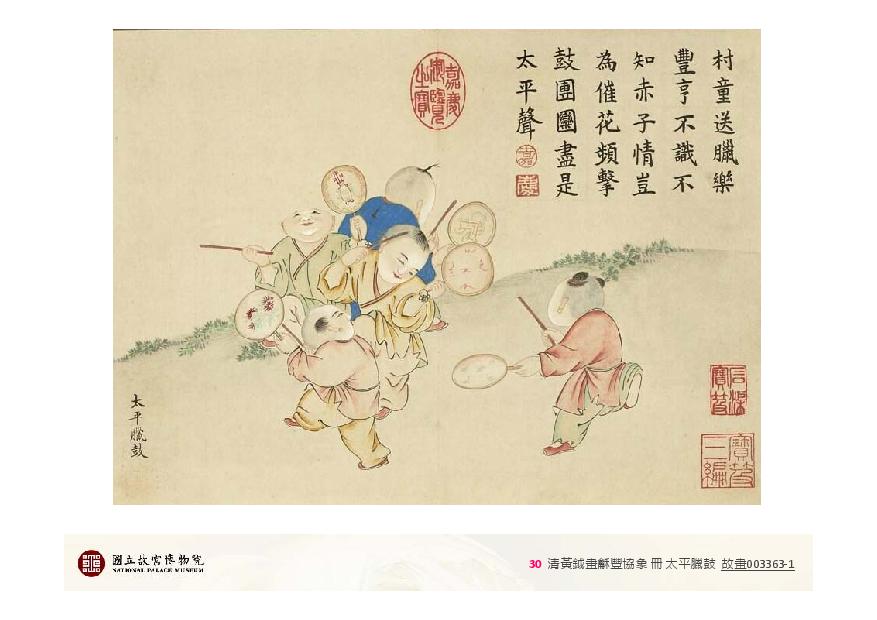 村童送臘樂
豐亨不識不
知赤子情豈
為催花頻擊
鼓團圞盡是
太平聲
嘉
慶
嘉慶
御覽
之寶
太平臘鼓
寶笈
三編
國立故宮博物院
NATIONAL PALACE MUSEUM
30 清黃鉞畫龢豐協象 冊 太平臘鼓 故畫003363-1